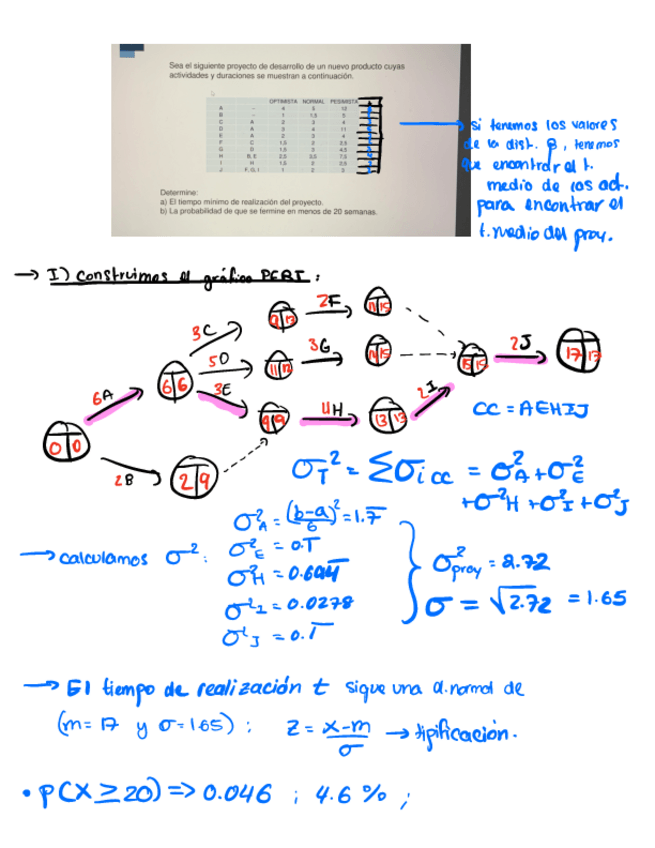 Sea el siguiente proyecto de desarrollo de un nuevo producto cuyas
actividades y duraciones se muestran a continuación.
OPTIMISTA NORMAL PESIMISTA
A - 4 5 12
B - 1 1,5 5
C A 2 3 4
D A 3 4 11
E A 2 3 4
F C 1,5 2 2,5
G D 1,5 3 4,5
H B, E 2,5 3,5 7,5
I H 1,5 2 2,5
J F, G, I 1 2 3
Determine:
a) El tiempo mínimo de realización del proyecto.
b) La probabilidad de que se termine en menos de 20 semanas.
si tenemos los valores
de la dist. β, tenemos
que encontrar el t.
medio de las act.
para encontrar el
t. medio del proy.
→ I) Construimos el gráfico PERT:
2F
3C
11 15
9 13
3G
2J
5D
14 15
17 17
6A
6 6
11 12
15 15
3E
2I
4H
0 0
9 9
13 13
CC = AEHIJ
2B
2 9
σT² = Σσi cc = σ²A + σ²E
+ σ²H + σ²I + σ²J
→ calculamos σ²:
σ²A = (b-a/6)² = 1.7
σ²E = 0.1
σ²H = 0.694
σ²I = 0.0278
σ²J = 0.1
σ²proy = 2.72
σ = √2.72 = 1.65
→ El tiempo de realización t sigue una d. normal de
(m = 17 y σ = 1.65): z = x-m/σ → tipificación.
• P(X ≥ 20) => 0.046 ; 4.6 % ;